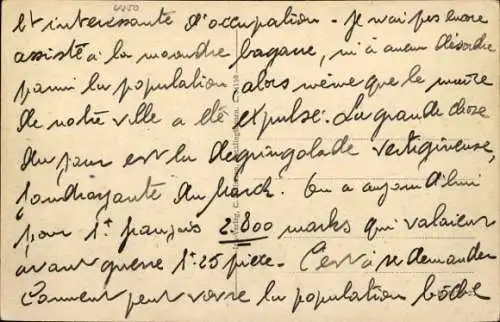 et intéressante d'occupation - Je n'ai pas encore
assisté à la moindre bagarre, ni à aucun désordre
parmi la population alors même que le maire
de notre ville a été expulsé. La grande chose
du jour est la dégringolade vertigineuse,
foudroyante du Mark. On a aujourd'hui
pour 1f français 2.800 marks qui valaient
avant guerre 1f 25 pièce. C'est à se demander
Comment peut vivre la population boche